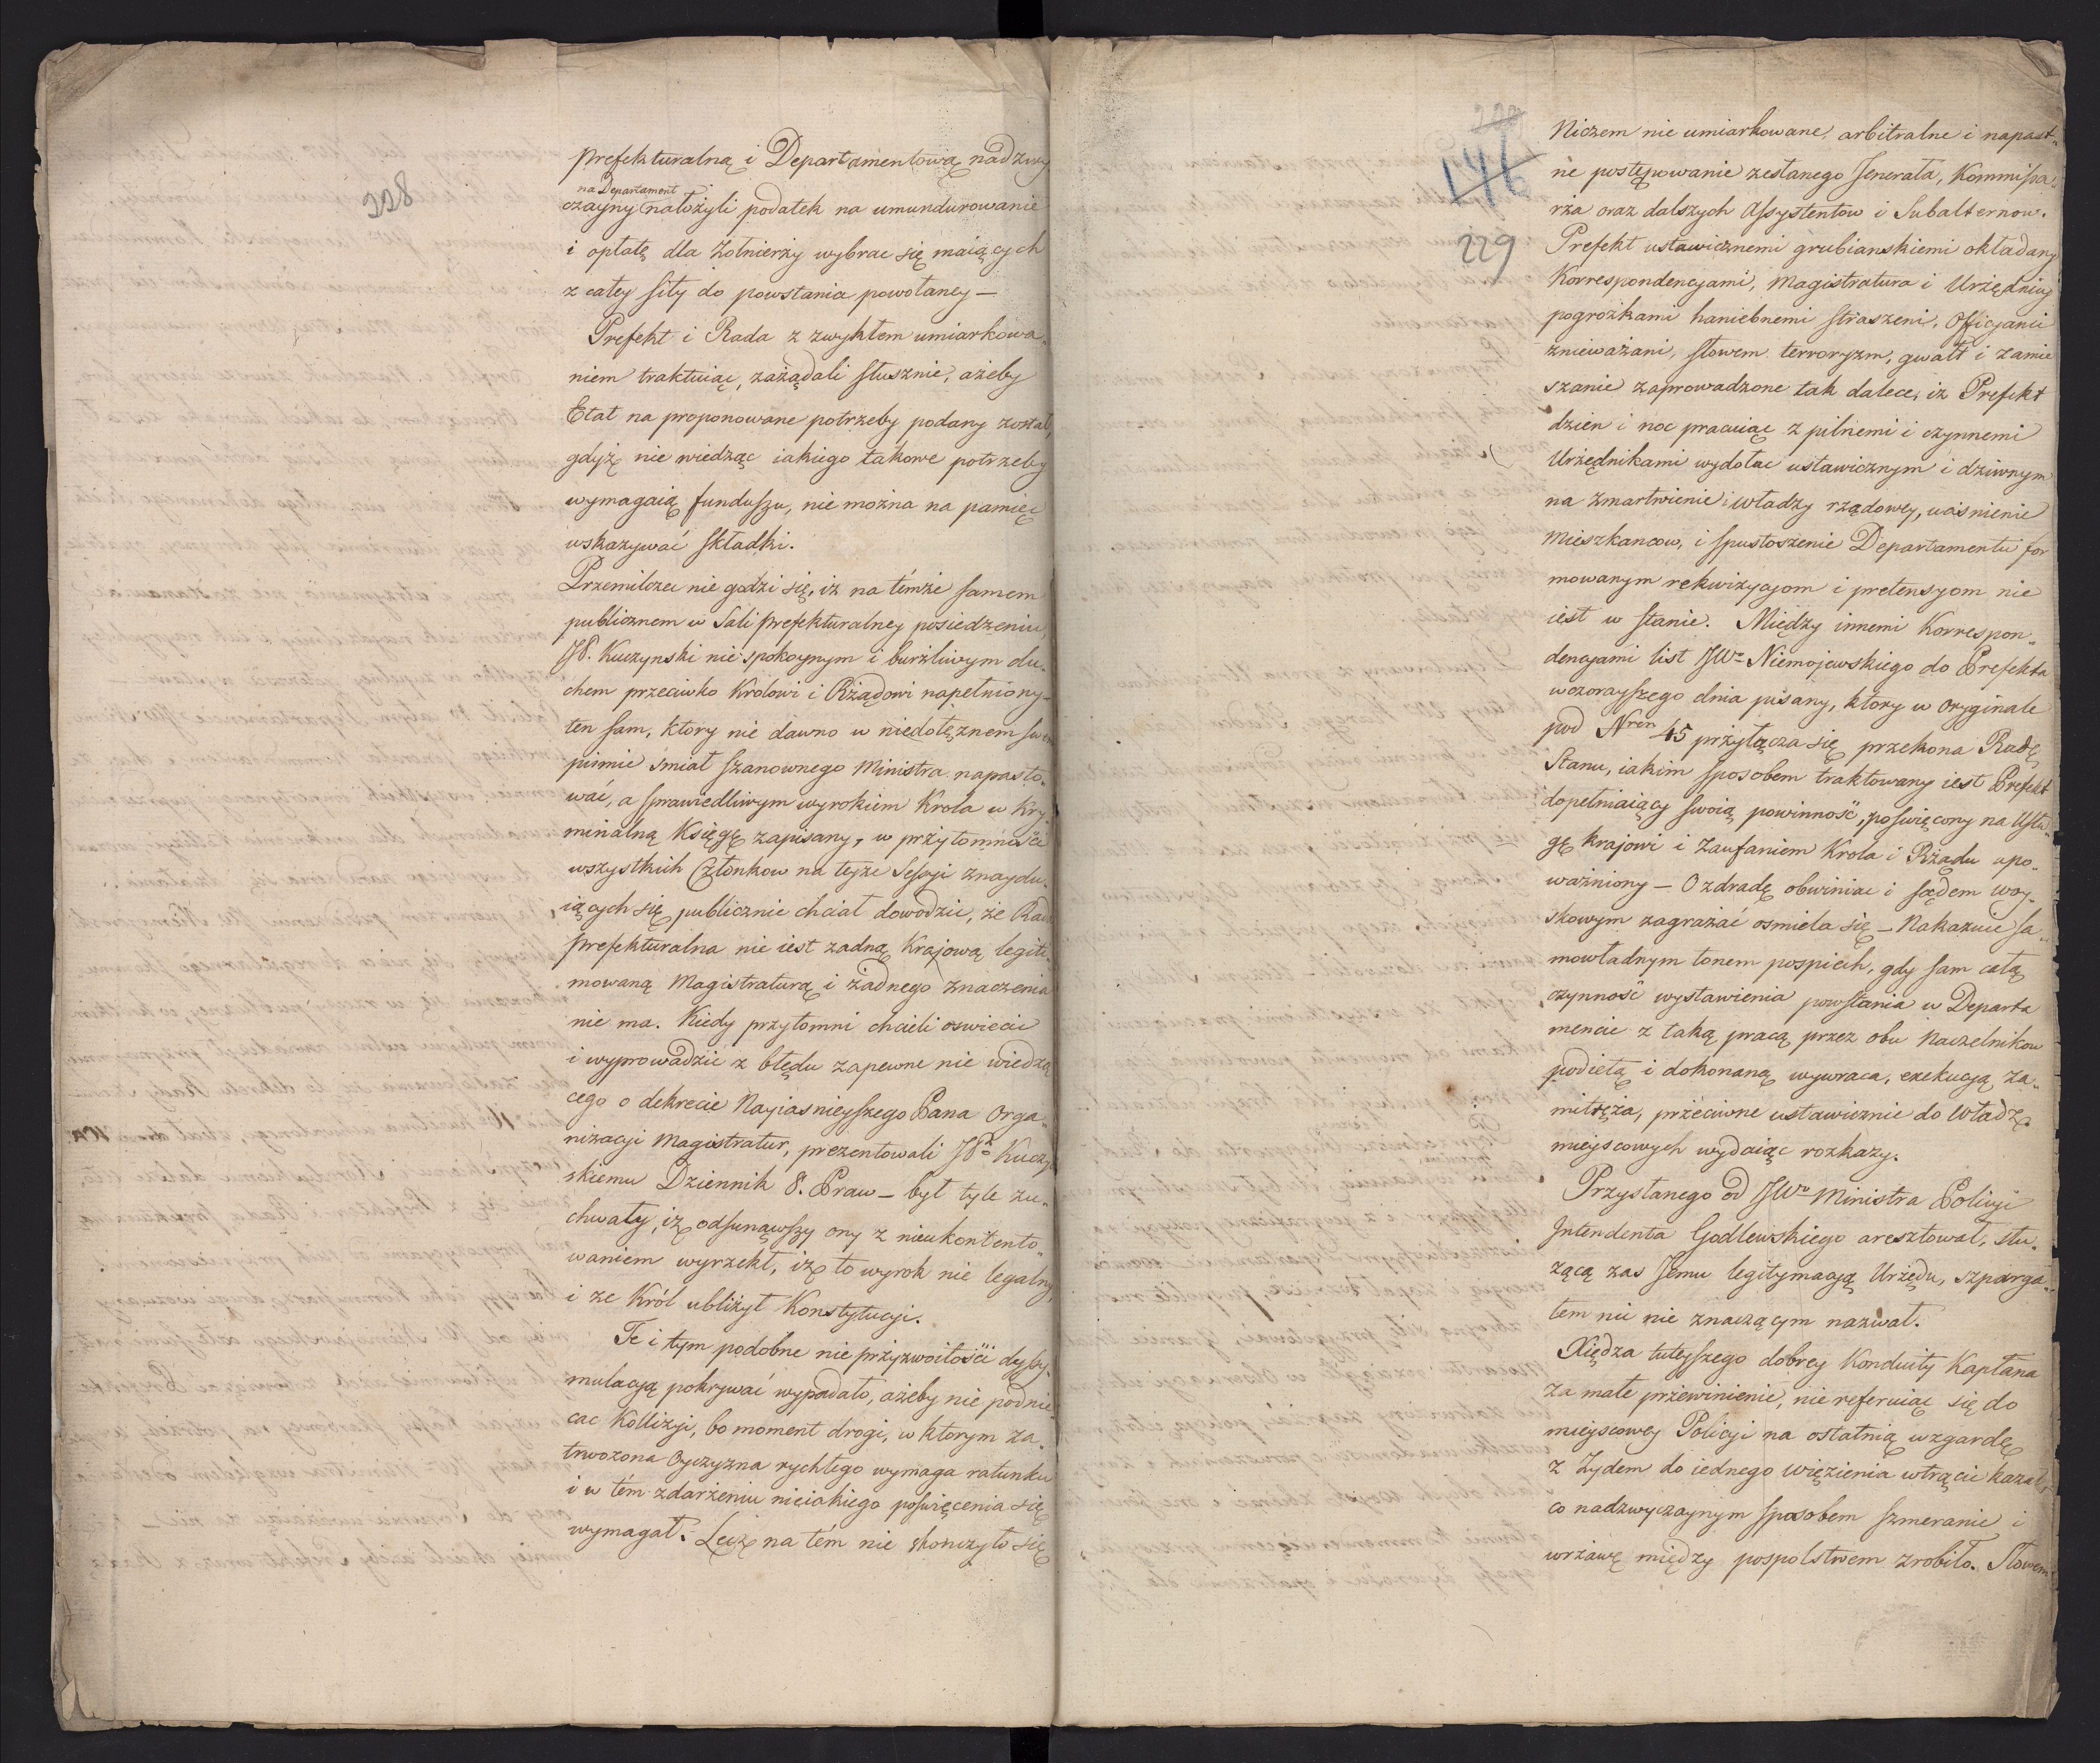 228
prefekturalną i Departamentową nadzwy
na Departament
czayny nałożyli podatek na umundurowanie
i opłatę dla żołnierzy wybrac się maiących
z całey siły do powstania powołaney —
Prefekt i Rada z zwykłem umiarkowa„
niem traktuiąc, zażądali słusznie, ażeby
Etat na proponowane potrzeby podany został,
gdyż nie wiedząc iakiego takowe potrzeby
wymagaią funduszu, nie można na pamięć
wskazywać składki.
Przemilczec nie godzi się, iż na témże samem
publicznem w Sali prefekturalney posiedzeniu,
JP. Kuczynski nie spokoynym i burżliwym du„
chem przeciwko Królowi i Rządowi napełniony
ten sam, ktory nie dawno w niedołężnem swem
pismie śmiał szanownego Ministra napasto„
wać, a sprawiedliwym wyrokiem Krola w Kry„
minalną Księgę zapisany, w przytomności
wszystkich Członkow na teyże Sessyi znaydu„
iących się publicznie chciał dowodzić, że Rada
prefekturalna nie iest zadną Krajową legiti„
mowaną Magistraturą i żadnego znaczenia
nie ma. Kiedy przytomni chcieli oswiecić
i wyprowadzić z błędu zapewne nie wiedzą
cego o dekrecie Nayiasnieyszego Pana Orga„
nizacyi Magistratur, prezentowali JPu Kuczyn
skiemu Dziennik 8. Praw — był tyle zu„
chwały, iż odsunąwszy ony z nieukontento„
waniem wyrzekł, iż to wyrok nie legalny,
i że Król ubliżył Konstytucyi.
Te i tym podobne nieprzyzwoitości dyssy„
mulacyą pokrywać wypadało, ażeby nie podnie„
cac Kollizyi, bo moment drogi, w ktorym za„
trwożona Oyczyzna rychłego wymaga ratunku
i w tém zdarżeniu nieiakiego poswięcenia się
wymagał. Lecz na tém nie skonczyło się
146
229
Niczem nie umiarkowane, arbitralne i napast„
ne postępowanie zesłanego Jenerała, Kommissa„
rża oraz dalszych Assystentow i Subalternow.
Prefekt ustawicznemi grubianskiemi okładany
Korrespondencyami, Magistratura i Urzędnicy
pogrożkami haniebnemi straszeni, Officyanci
znieważani, słowem terroryzm, gwałt i zamie
szanie zaprowadzone tak dalece, iż Prefekt
dzien i noc pracuiąc z pilnemi i czynnemi
Urzędnikami wydołac ustawicznym i dziwnym
na zmartwienie władzy rządowey, uciśnienie
Mieszkancow, i spustoszenie Departamentu for
mowanym rekwizycyom i pretensyom nie
iest w stanie. Między innemi Korrespon„
dencyami list JWo Niemojewskiego do Prefekta
wczorayszego dnia pisany, ktory w oryginale
pod Nren 45 przyłącza się przekona Radę
Stanu, iakim sposobem traktowany iest Prefekt
dopełniaiący swoią powinność, poswięcony na Usłu„
gę krajowi i zaufaniem Krola i Rządu upo„
ważniony — O zdradę obwiniac i sądem woy„
skowym zagrażać osmiela się — Nakazuie sa„
mowładnym tonem pospiech, gdy sam całą
czynność wystawienia powstania w Departa
mencie z taką pracą przez obu Naczelnikow
podiętą i dokonaną wywraca, exekucyą za„
mitręża, przeciwne ustawicznie do Władz
mieyscowych wydaiąc rozkazy.
Przysłanego od JWo Ministra Policyi
Intendenta Godlewskiego aresztował, słu„
żącą zas Jemu legitymacyą Urzędu, szparga„
łem nic nie znaczącym nazwał.
Xiędza tuteyszego dobrey Konduity Kapłana
za małe przewinienie, nie referuiąc się do
mieyscowey Policyi na ostatnią wzgardę
z Żydem do iednego więzienia wtrącić kazał,
co nadzwyczaynym sposobem szmeranie i
wrżawę między pospolstwem zrobiło. Słowem